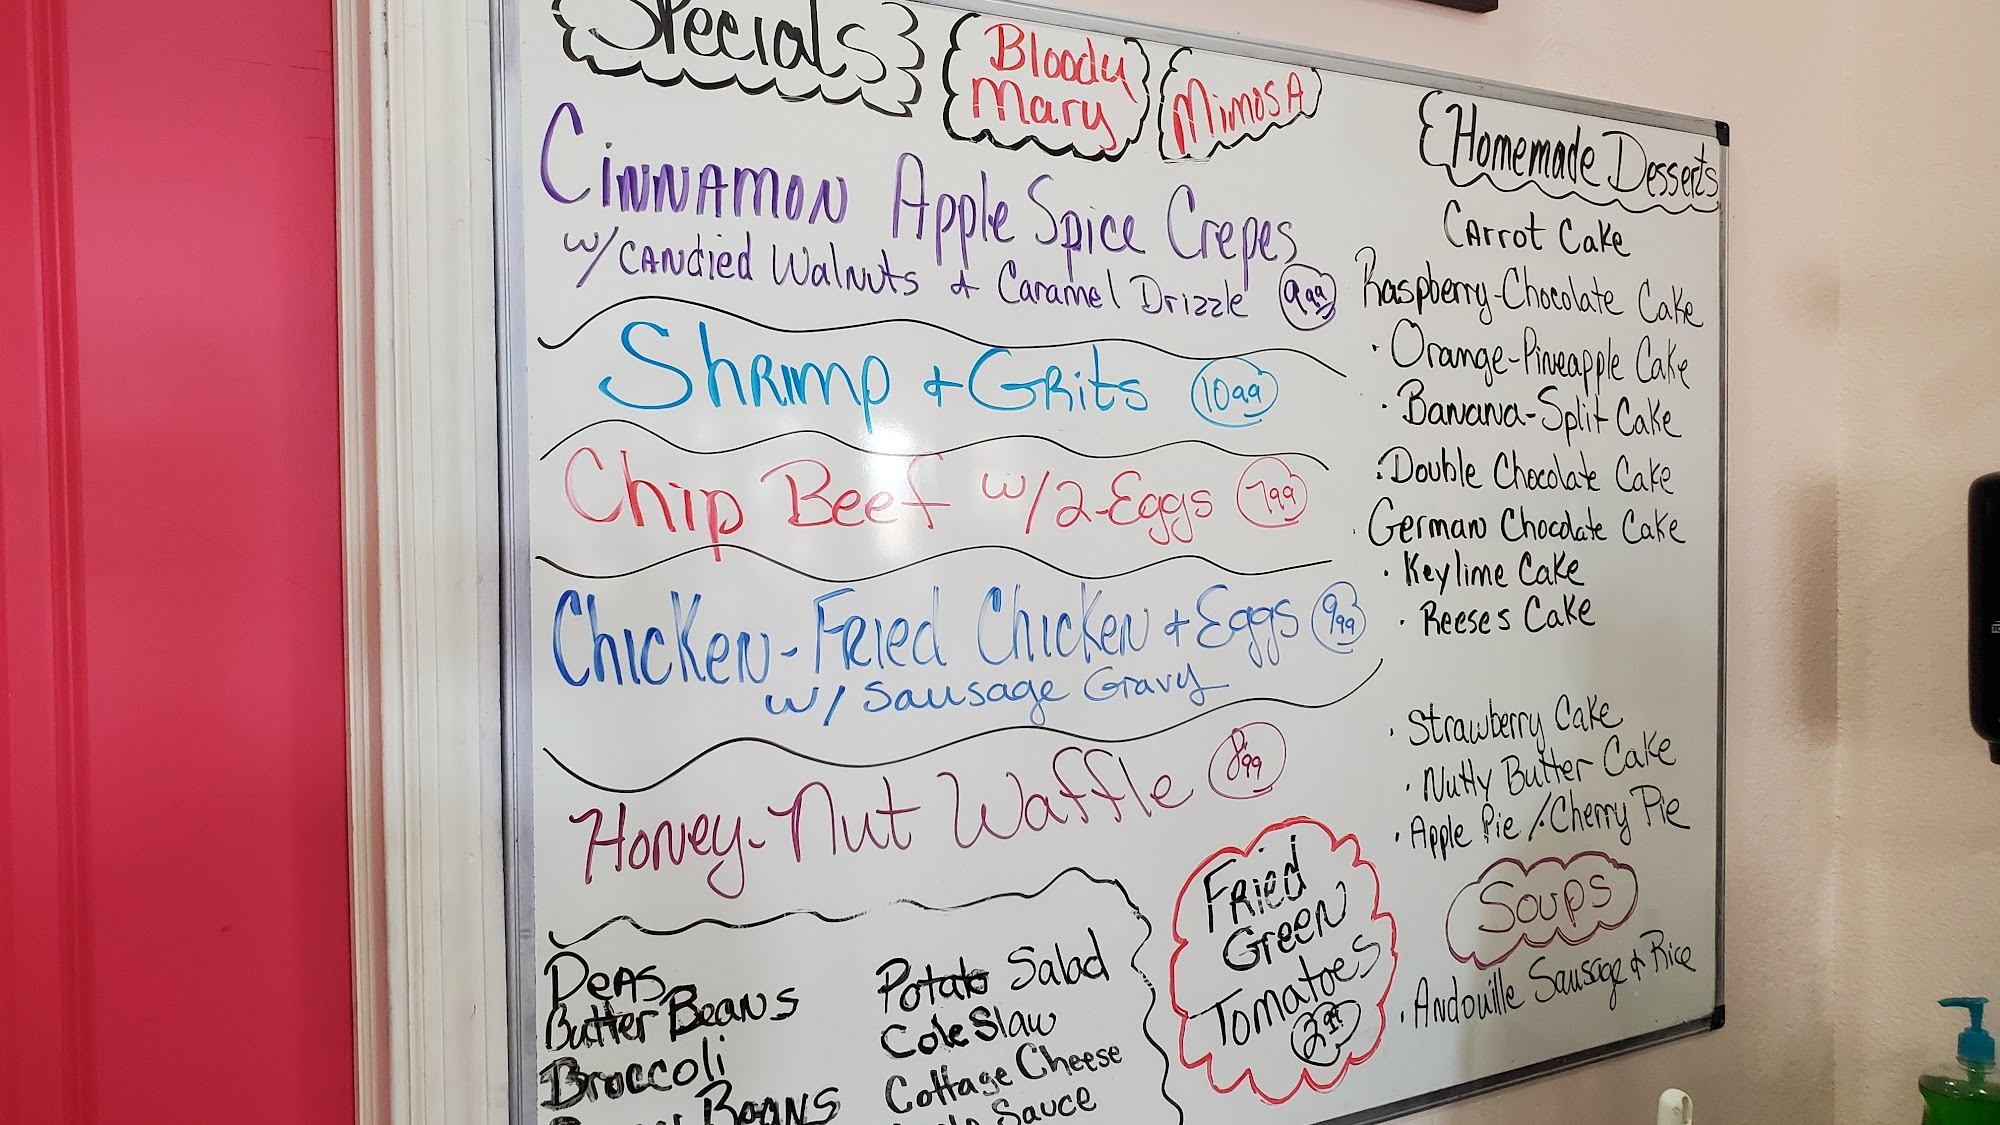 Specials
Bloody
Mary
MimosA
Cinnamon Apple Spice Crepes
w/ Candied Walnuts + Caramel Drizzle 9.99
Shrimp + Grits 10.99
Chip Beef w/2-Eggs 7.99
Chicken-Fried Chicken + Eggs 9.99
w/ Sausage Gravy
Honey-Nut Waffle 8.99
Peas
Butter Beans
Broccoli
Beans
Potato Salad
Cole Slaw
Cottage Cheese
Sauce
Fried
Green
Tomatoes
2.99
Homemade Desserts
Carrot Cake
Raspberry-Chocolate Cake
· Orange-Pineapple Cake
· Banana-Split Cake
· Double Chocolate Cake
· German Chocolate Cake
· Keylime Cake
· Reese's Cake
· Strawberry Cake
· Nutty Butter Cake
· Apple Pie / Cherry Pie
Soups
· Andouille Sausage + Rice